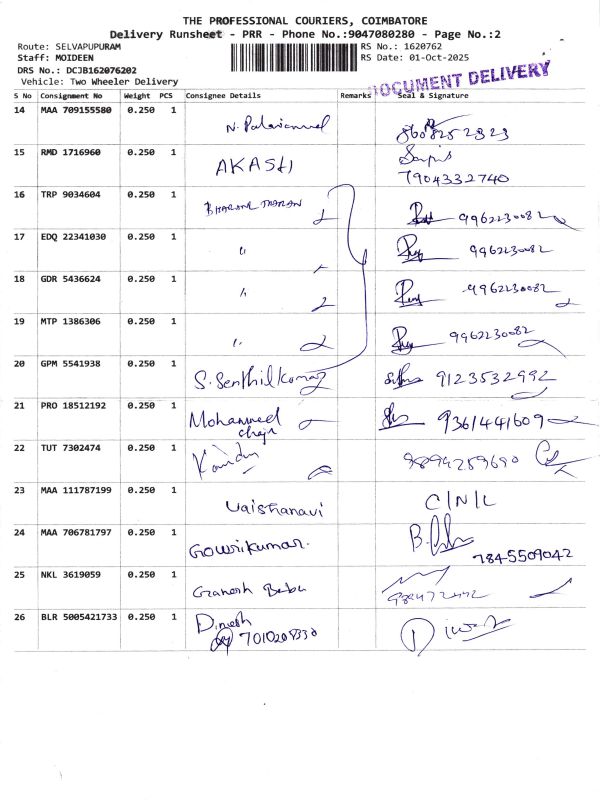 THE PROFESSIONAL COURIERS, COIMBATORE
Delivery Runsheet - PRR - Phone No.:9047080280 - Page No.:2
Route: SELVAPUPURAM RS No.: 1620762
Staff: MOIDEEN RS Date: 01-Oct-2025
DRS No.: DCJB162076202
Vehicle: Two Wheeler Delivery
DOCUMENT DELIVERY
S No Consignment No Weight PCS Consignee Details Remarks Seal & Signature
14 MAA 709155580 0.250 1 8608252323
15 RMD 1716960 0.250 1 AKASH
7904332740
16 TRP 9034604 0.250 1 9962230082
17 EDQ 22341030 0.250 1 " 9962230082
18 GDR 5436624 0.250 1 " 9962230082
19 MTP 1386306 0.250 1 " 9962230082
20 GPM 5541938 0.250 1 S. Senthilkumar 9123532992
21 PRO 18512192 0.250 1 Mohammed 9361441609
22 TUT 7302474 0.250 1 9894259690
23 MAA 111787199 0.250 1 Vaishanavi C/N/L
24 MAA 706781797 0.250 1 Gowrikumar. B.
7845509042
25 NKL 3619059 0.250 1 Ganesh Babu
26 BLR 5005421733 0.250 1 Dinesh
7010208330